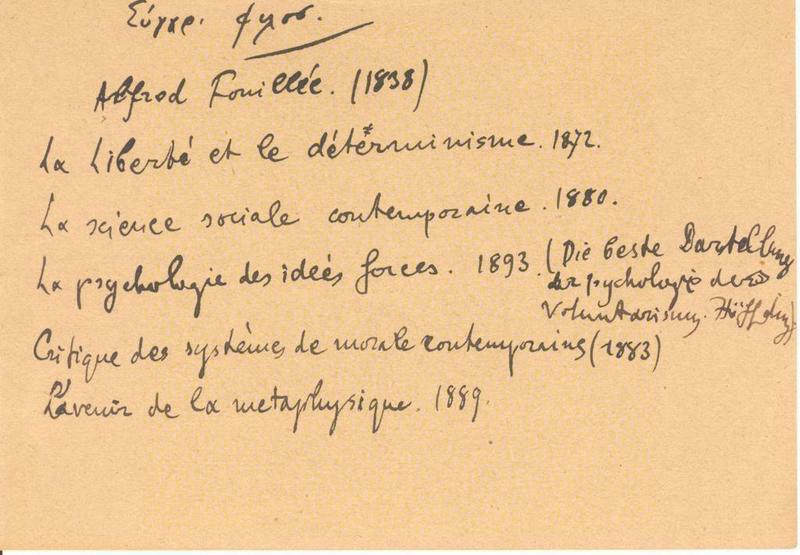 Σύγχρ. φιλοσ.
Alfred Fouillée. (1838)
La Liberté et le détérminisme. 1872.
La science sociale contemporaine. 1880.
La psychologie des ideés forces. 1893. (Die beste Darstellung
der psychologie des
Voluntarismus. Höffding)
Critique des systémes de morale contemporains (1883)
L'avenir de la metaphysique. 1889.